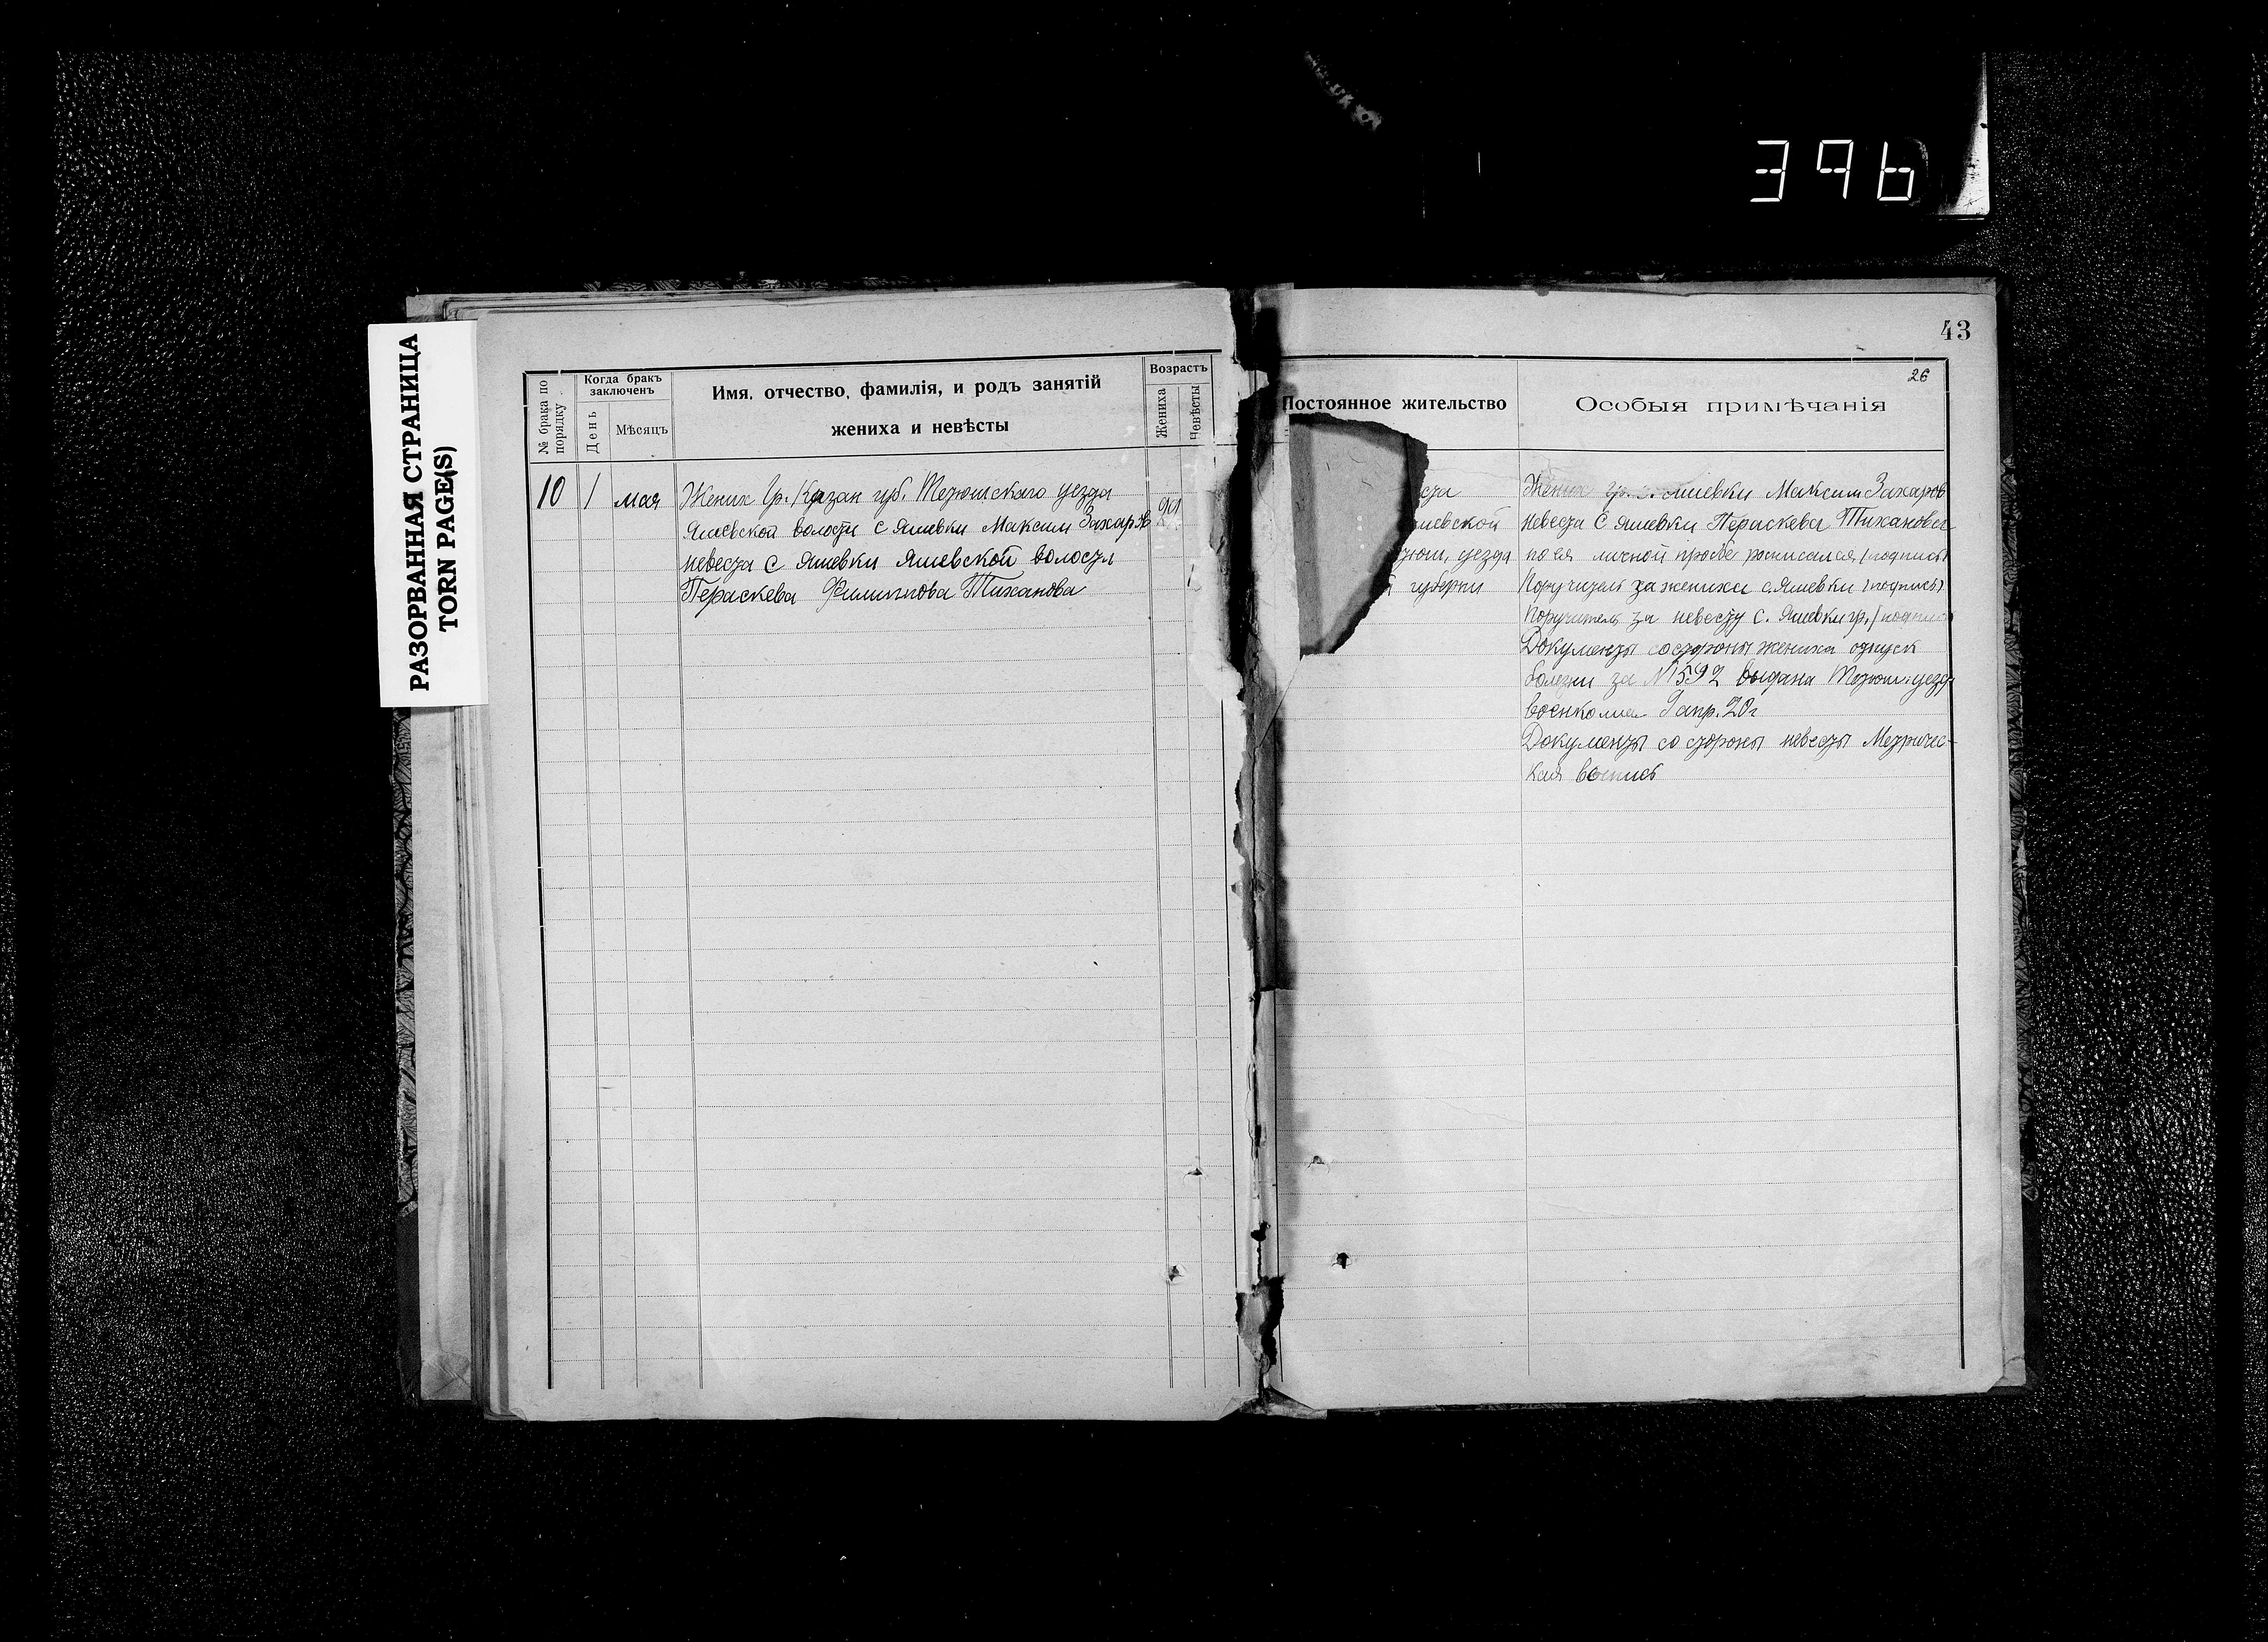 396
РАЗОРВАННАЯ СТРАНИЦА
TORN PAGE(S)
43
26
№ брака по порядку
Когда бракъ заключенъ
День
Мѣсяцъ
Имя, отчество, фамилія, и родъ занятій
жениха и невѣсты
Возрастъ
Жениха
Невѣсты
Постоянное жительство
Особыя примѣчанія
10 1 мая
Жених Гр. Казан губ. Тетюшскаго уезда
Яшевской волости с Яшевки Максим Захаров
невеста с Яшевки Яшевской волости
Пераскева Филиппова Тиханова
уезда
губерни
Жених гр. с. Яшевки Максим Захаров
невеста с Яшевки Пераскева Тиханова
по ея личной прозбе росписался (подпись)
Поручитель за жениха с. Яшевки (подпись)
Поручитель за невесту с. Яшевки гр. (подпись
Документы состороны жениха отпуск
болезни за №1592 выдана Тетюш. уезд
военкома 9 апр. 20г
Документы со стороны невесты Метричес-
кая выпись